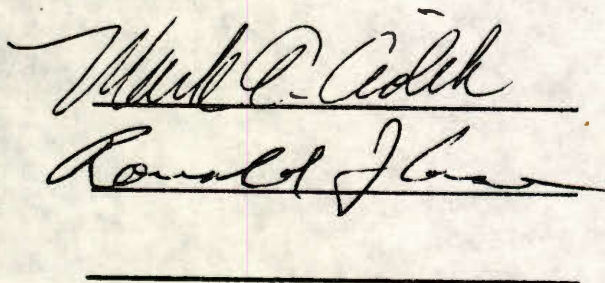 Mark A. Ciolek
Ronald J.